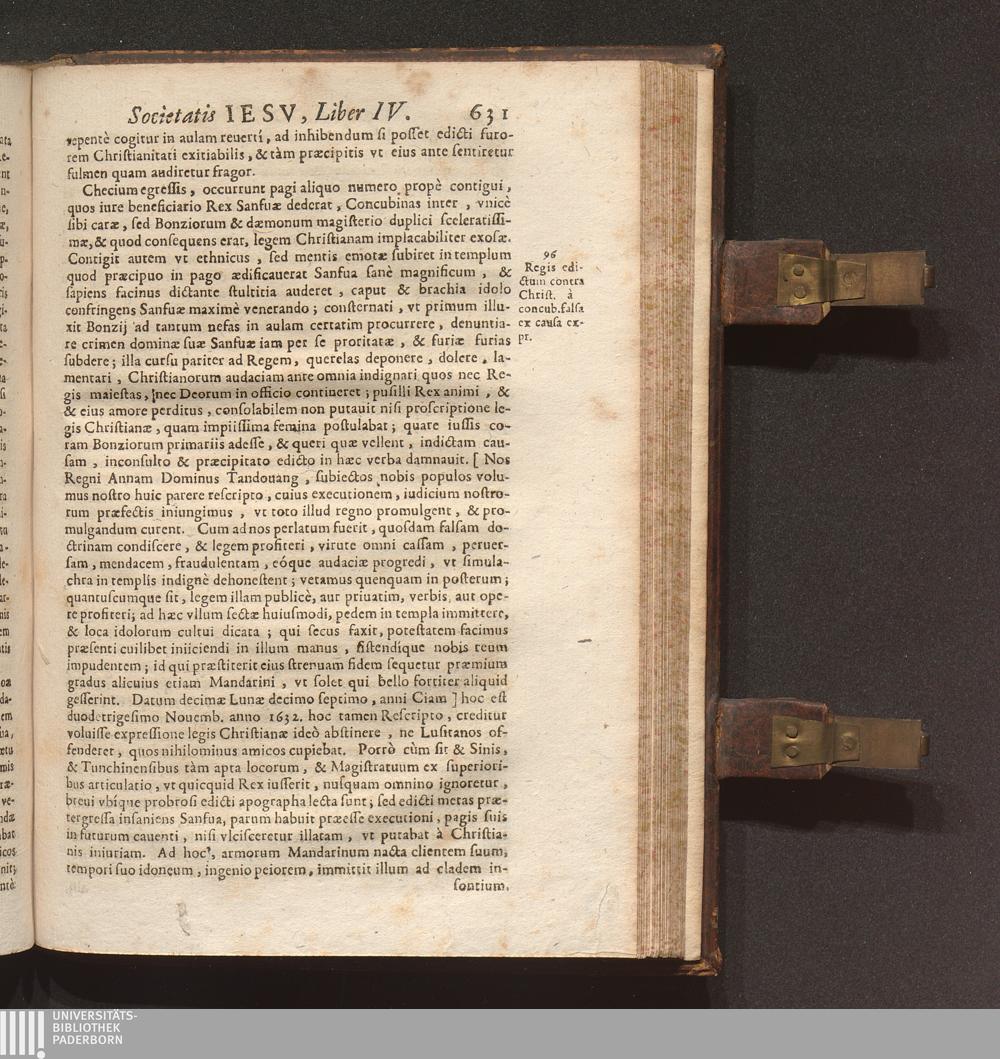 Societatis IESV, Liber IV. 631
repentè cogitur in aulam reuerti, ad inhibendum si posset edicti furo-
rem Christianitati exitiabilis, & tàm præcipitis vt eius ante sentiretur
fulmen quam audiretur fragor.
Checium egressis, occurrunt pagi aliquo numero propè contigui,
quos iure beneficiario Rex Sanfuæ dederat, Concubinas inter, vnicè
sibi caræ, sed Bonziorum & dæmonum magisterio duplici sceleratissi-
mæ, & quod consequens erat, legem Christianam implacabiliter exosæ.
Contigit autem vt ethnicus, sed mentis emotæ subiret in templum
quod præcipuo in pago ædificauerat Sanfua sanè magnificum, &
sapiens facinus dictante stultitia auderet, caput & brachia idolo
confringens Sanfuæ maximè venerando; consternati, vt primum illu-
xit Bonzij ad tantum nefas in aulam certatim procurrere, denuntia-
re crimen dominæ suæ Sanfuæ iam per se proritatæ, & furiæ furias
subdere; illa cursu pariter ad Regem, querelas deponere, dolere, la-
mentari, Christianorum audaciam ante omnia indignari quos nec Re-
gis maiestas, nec Deorum in officio contineret; pusilli Rex animi, &
& eius amore perditus, consolabilem non putauit nisi proscriptione le-
gis Christianæ, quam impiissima femina postulabat; quare iussis co-
ram Bonziorum primariis adesse, & queri quæ vellent, indictam cau-
sam, inconsulto & præcipitato edicto in hæc verba damnauit. [ Nos
Regni Annam Dominus Tandouang, subiectos nobis populos volu-
mus nostro huic parere rescripto, cuius executionem, iudicium nostro-
rum præfectis iniungimus, vt toto illud regno promulgent, & pro-
mulgandum curent. Cum ad nos perlatum fuerit, quosdam falsam do-
ctrinam condiscere, & legem profiteri, virute omni cassam, peruer-
sam, mendacem, fraudulentam, eóque audaciæ progredi, vt simula-
chra in templis indignè dehonestent; vetamus quenquam in posterum;
quantuscumque sit, legem illam publicè, aut priuatim, verbis, aut ope-
re profiteri; ad hæc vllum sectæ huiusmodi, pedem in templa immittere,
& loca idolorum cultui dicata; qui secus faxit, potestatem facimus
præsenti cuilibet iniiciendi in illum manus, sistendique nobis reum
impudentem; id qui præstiterit eius strenuam fidem sequetur præmium
gradus alicuius etiam Mandarini, vt solet qui bello fortiter aliquid
gesserint. Datum decimæ Lunæ decimo septimo, anni Ciam ] hoc est
duodetrigesimo Nouemb. anno 1632. hoc tamen Rescripto, creditur
voluisse expressione legis Christianæ ideò abstinere, ne Lusitanos of-
fenderet, quos nihilominus amicos cupiebat. Porrò cùm sit & Sinis,
& Tunchinensibus tàm apta locorum, & Magistratuum ex superiori-
bus articulatio, vt quicquid Rex iusserit, nusquam omnino ignoretur,
breui vbíque probrosi edicti apographa lecta sunt; sed edicti metas præ-
tergressa insaniens Sanfua, parum habuit præesse executioni, pagis suis
in futurum cauenti, nisi vlcisceretur illatam, vt putabat à Christia-
nis iniuriam. Ad hoc, armorum Mandarinum nacta clientem suum,
tempori suo idoneum, ingenio peiorem, immittit illum ad cladem in-
sontium,
96
Regis edi-
ctum contra
Christ. à
concub. falsa
ex causa ex-
pr.
UNIVERSITÄTS-
BIBLIOTHEK
PADERBORN